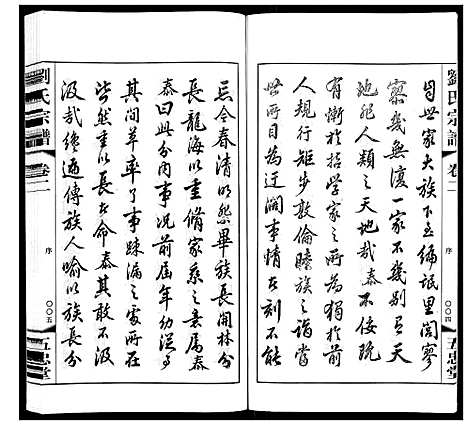 劉氏宗譜
卷二
序
〇〇四
五忠堂
自世家大族下至編氓里閭寥
寥幾無復一家不幾別有天
地非人類之天地哉泰不佞既
有慚於哲學家之所為獨於前
人規行矩步敦倫睦族之誼當
世所目為迂濶事情在刻不能
忘今春清明祭畢族長開林分
長龍海以重修家乘之長屬泰
泰曰此分內事況前屆年幼從事
其間草率了事疎漏之處所在
皆然重以長在命泰其敢不汲
汲哉繼遍傳族人喻以族長分
劉氏宗譜
卷二
序
〇〇五
五忠堂